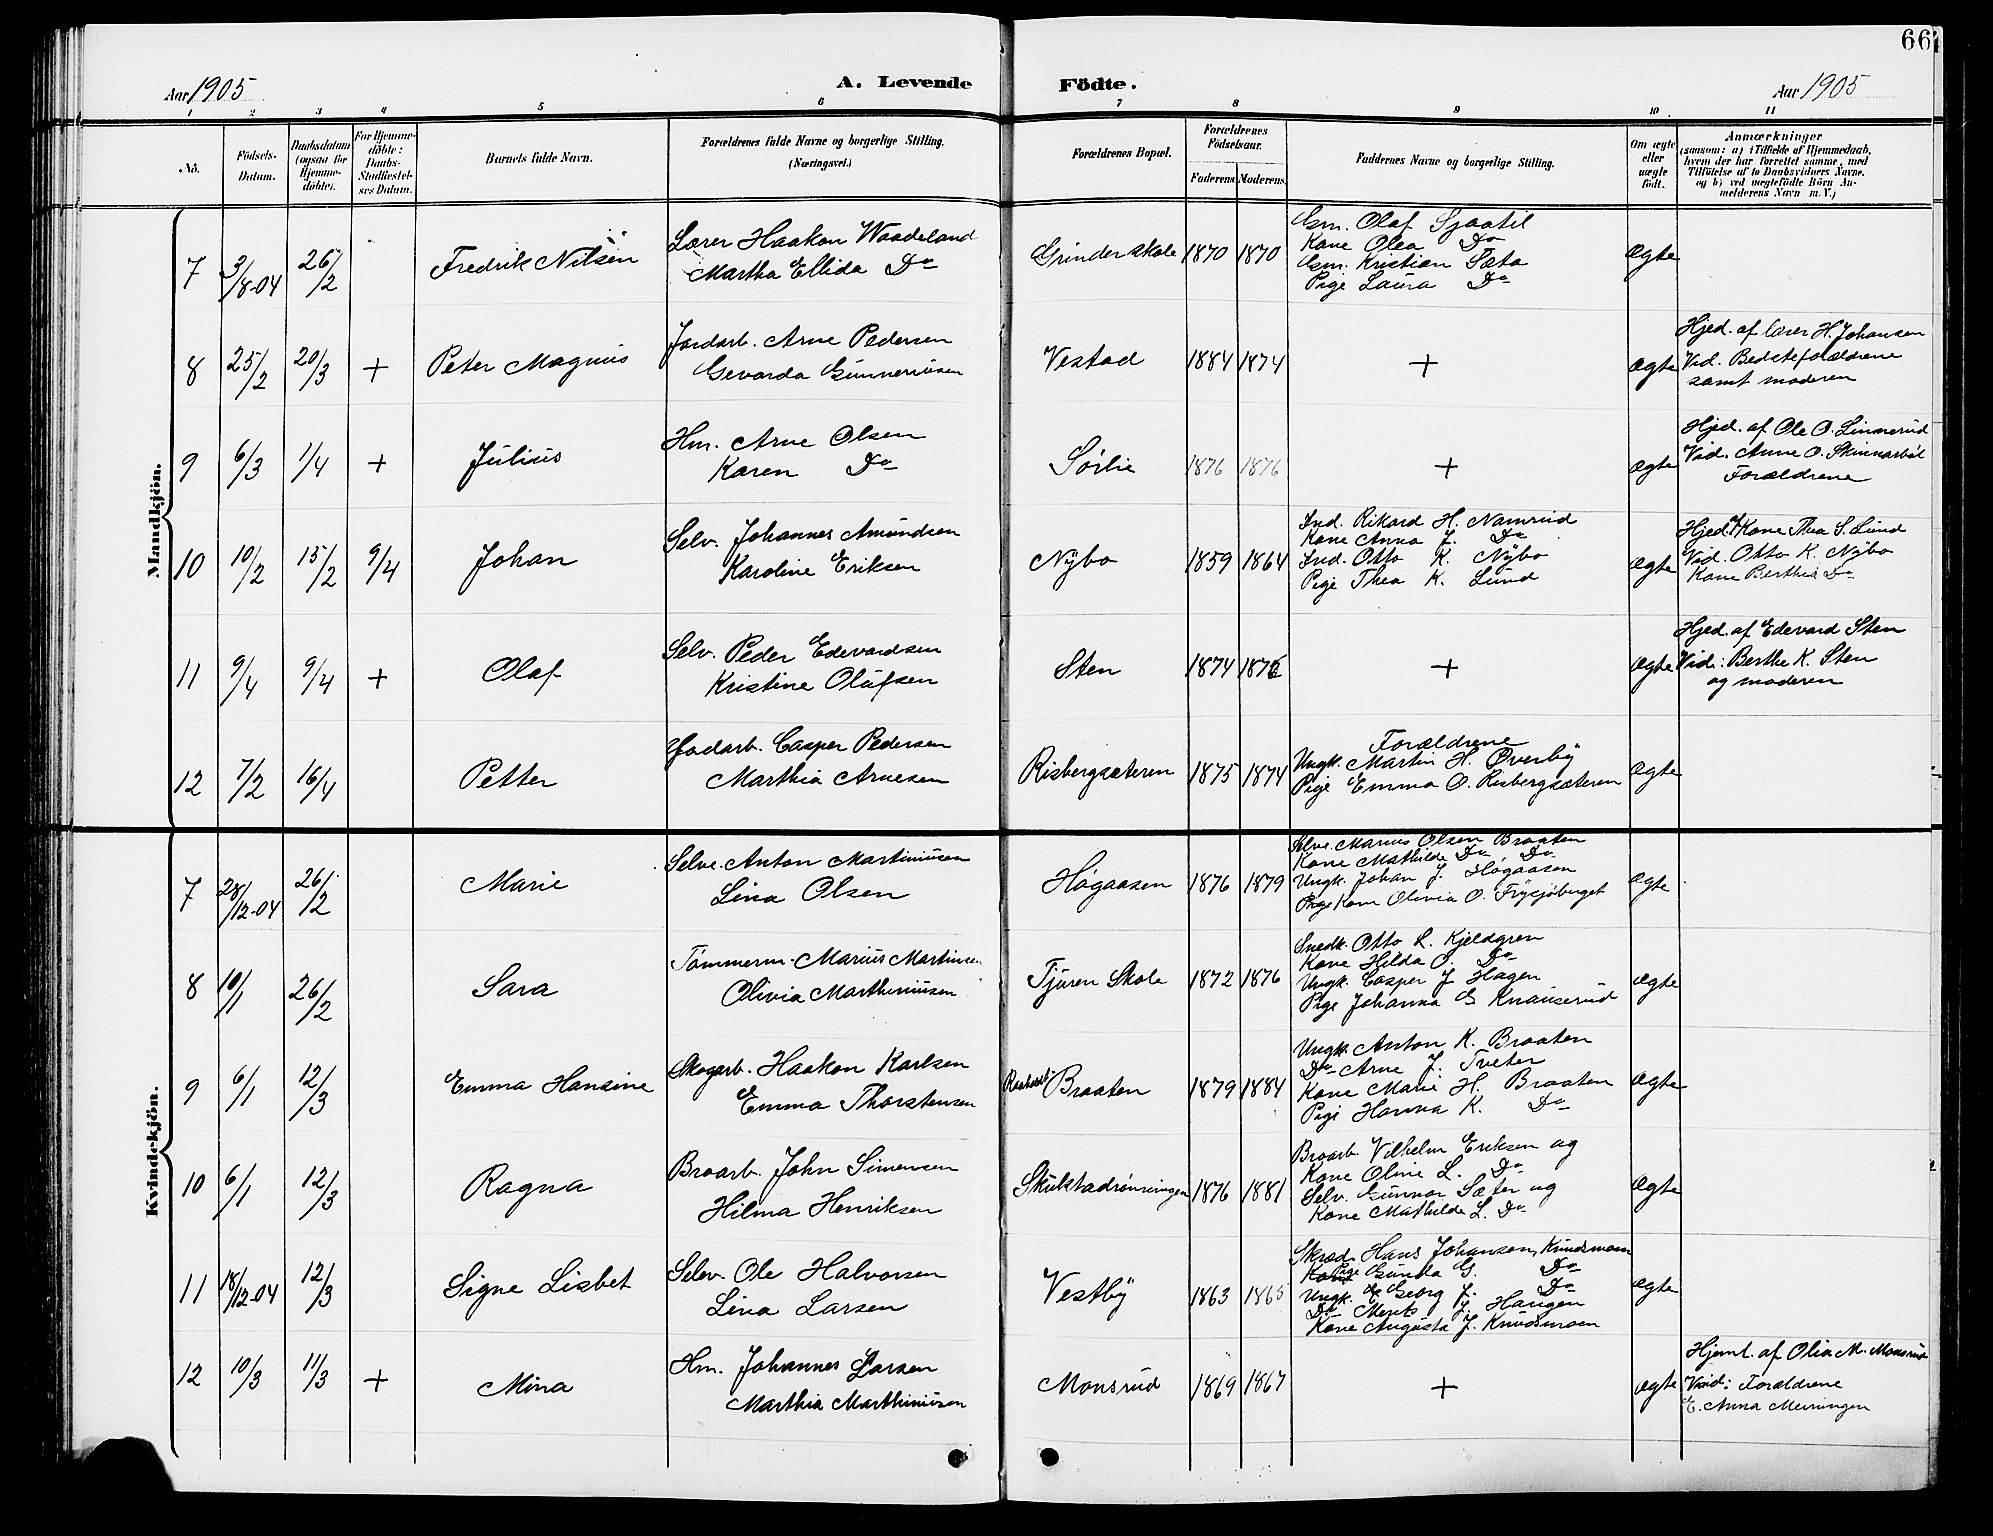 66
Aar 1905
A. Levende Födte.
Aar 1905
1 2 3 4 5 6 7 8 9 10 11
No.
Födsels-Datum.
Daabsdatum (ogsaa for Hjemme-döbte).
For Hjemme-döbte: Daabs-Stadfæstel-ses Datum.
Barnets fulde Navn.
Forældrenes fulde Navne og borgerlige Stilling.
(Næringsvei.)
Forældrenes Bopæl.
Forældrenes Födselsaar.
Faderens Moderens
Faddernes Navne og borgerlige Stilling.
Om ægte eller uægte födt.
Anmærkninger
(saasom: a) i Tilfælde af Hjemmedaab, hvem der har forrettet samme, med Tilföielse af to Daabsvidners Navne, og b) ved uægtefödte Börn An-melderens Navn m. V.)
Mandkjön.
7 3/8-04 26/2 Fredrik Nilsen
Lærer Haakon Waadeland
Martha Ellida Do
Grinder skole 1870 1870
Gm. Olaf Sjaatil
Kone Olea Do
Gm. Kristian Sæta
Pige Laura Do
Ægte
8 25/2 20/3 + Peter Magnus
Jordarb. Arne Pedersen
Gevarda Gunneriusen
Vestad 1884 1874 + Ægte
Hjed. af lærer H. Johansen
Vid. Bedsteforældrene
samt moderen
9 6/3 1/4 + Julius
Hm. Arne Olsen
Karen Do
Sørlie 1876 1876 + Ægte
Hjed. af Ole O. Linnerud
Vid. Anne O. Skinnarbøl
Forældrene
10 10/2 15/2 9/4 Johan
Selv. Johannes Amundsen
Karoline Eriksen
Nybo 1859 1864
Ind. Rikard H. Namrud
Kone Anna J. Do
Ind. Otto K. Nybo
Pige Thea K. Lund
Ægte
Hjed. af Kone Thea S. Lund
Vid. Otto K. Nybo
Kone Berthia Do
11 9/4 9/4 + Olaf
Selv. Peder Edevardsen
Kristine Olufsen
Sten 1874 1876 + Ægte
Hjed. af Edevard Sten
Vid: Berthe K. Sten
og moderen
12 7/2 16/4 Petter
Jordarb. Casper Pedersen
Marthia Arnesen
Risbergsæteren 1875 1874
Forældrene
Ungk. Martin H. Øverby
Pige Emma O. Risbergsæteren
Ægte
Kvindekjön.
7 28/12-04 26/2 Marie
Selve. Anton Martiniusen
Lina Olsen
Høgaasen 1876 1879
Selve. Marius Olsen Braaten
Kone Mathilde Do Do
Ungk. Johan J. Høgaasen
Kone Olivia O. Frysjøberget
Ægte
8 10/1 26/2 Sara
Tømmerm. Marius Martinsen
Olivia Marthiniusen
Tjuren Skole 1872 1876
Snedk. Otto L. Kjeldgren
Kone Hilda O. Do
Ungk. Casper J Hagen
Pige Johanna G Knauserud
Ægte
9 6/1 12/3 Emma Hansine
Skogarb. Haakon Karlsen
Emma Thorstensen
Braaten 1879 1884
Ungk. Anton K. Braaten
Do Arne J. Tveter
Kone Marie H. Braaten
Pige Hanna K. Do
Ægte
10 6/1 12/3 Ragna
Braarb. John Simensen
Hilma Henriksen
Skulstadrønningen 1876 1881
Braarb. Vilhelm Eriksen og
Kone Oline L. Do
Selv. Gunnar Sæter og
Kone Mathilde L. Do
Ægte
11 18/12-04 12/3 Signe Lisbet
Selev. Ole Halvorsen
Lina Larsen
Vestby 1863 1865
Skræd. Hans Johansen, Knudsmoen
Pige Gunda G. Do
Ungk. Georg J. Do
Do Ments J. Haugen
Kone Augusta J. Knudsmoen
Ægte
12 10/3 11/3 + Mina
Hm. Johannes Larsen
Marthia Marthiniusen
Monsrud 1869 1867 + Ægte
Hjemt. af Olia M. Monsrud
Vid: Forældrene
E. Anna Meiningen